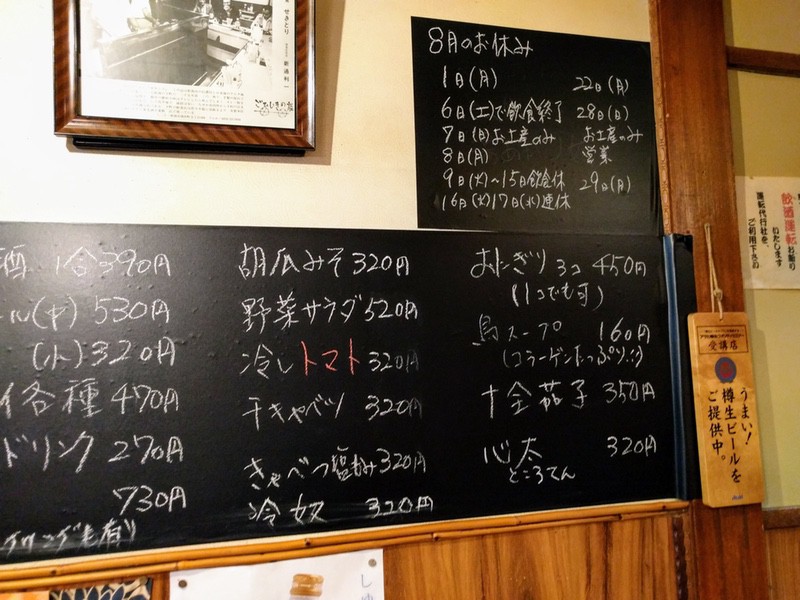 せきとり
8月のお休み
1日(月)
6日(土)で飲食終了
7日(日)お土産のみ
8日(月)
9日(火)〜15日飲食休
16日(火)17日(水)連休
22日(月)
28日(日)
お土産のみ
営業
29日(月)
酒 1合 390円
ル(中) 530円
(小) 320円
イ各種 470円
ドリンク 270円
730円
胡瓜みそ 320円
野菜サラダ 520円
冷しトマト 320円
干キャベツ 320円
きゃべつ 320円
冷奴 320円
おにぎり 3コ 450円
(1コでも可)
鳥スープ 160円
(コラーゲンたっぷり:))
十全茄子 350円
心太 320円
ところてん
飲酒運転お断り
いたします
運転代行社を、
ご利用下さい
受講店
うまい!
樽生ビールを
ご提供中。
Asahi